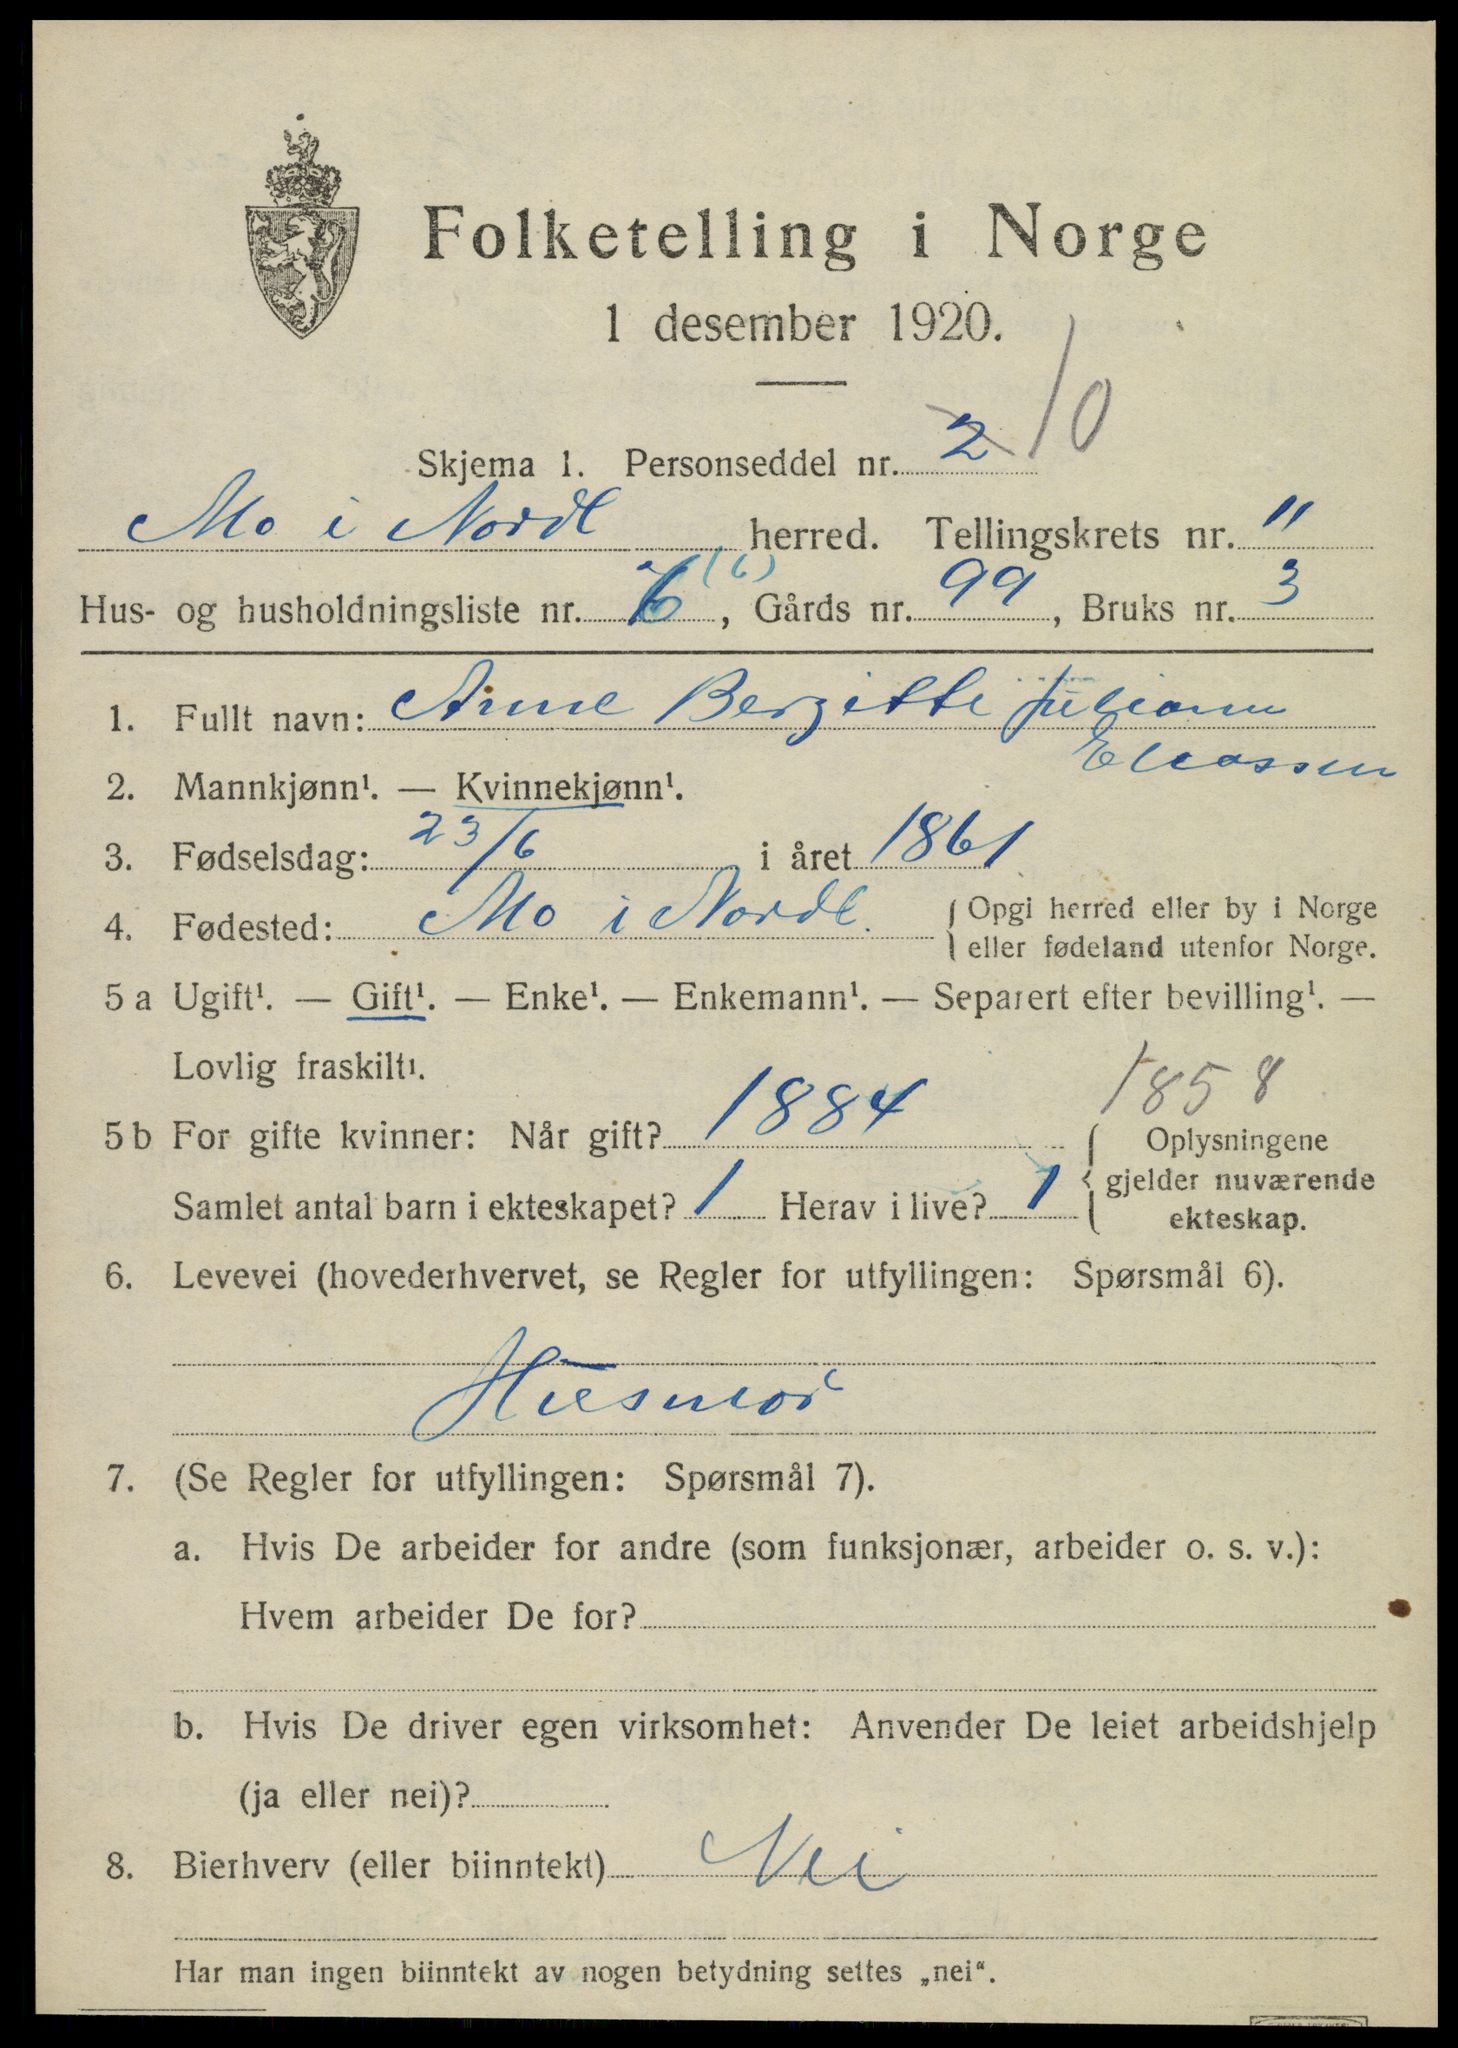 Folketelling i Norge
1 desember 1920.
Skjema 1. Personseddel nr. 2 10
Mo i Nordl herred. Tellingskrets nr. 11
Hus- og husholdningsliste nr. 6 (6), Gårds nr. 99, Bruks nr. 3
1. Fullt navn: Anne Bergitte Juliane
Eliassen
2. Mannkjønn¹. — Kvinnekjønn¹.
3. Fødselsdag: 23/6 i året 1861
4. Fødested: Mo i Nordl. { Opgi herred eller by i Norge
eller fødeland utenfor Norge.
5 a Ugift¹. — Gift¹. — Enke¹. — Enkemann¹. — Separert efter bevilling¹. —
Lovlig fraskilt¹.
1858
5 b For gifte kvinner: Når gift? 1884
Samlet antal barn i ekteskapet? 1 Herav i live? 1
Oplysningene
gjelder nuværende
ekteskap.
6. Levevei (hovederhvervet, se Regler for utfyllingen: Spørsmål 6).
Husmor
7. (Se Regler for utfyllingen: Spørsmål 7).
a. Hvis De arbeider for andre (som funksjonær, arbeider o. s. v.):
Hvem arbeider De for?
b. Hvis De driver egen virksomhet: Anvender De leiet arbeidshjelp
(ja eller nei)?
8. Bierhverv (eller biinntekt) Nei
Har man ingen biinntekt av nogen betydning settes „nei“.